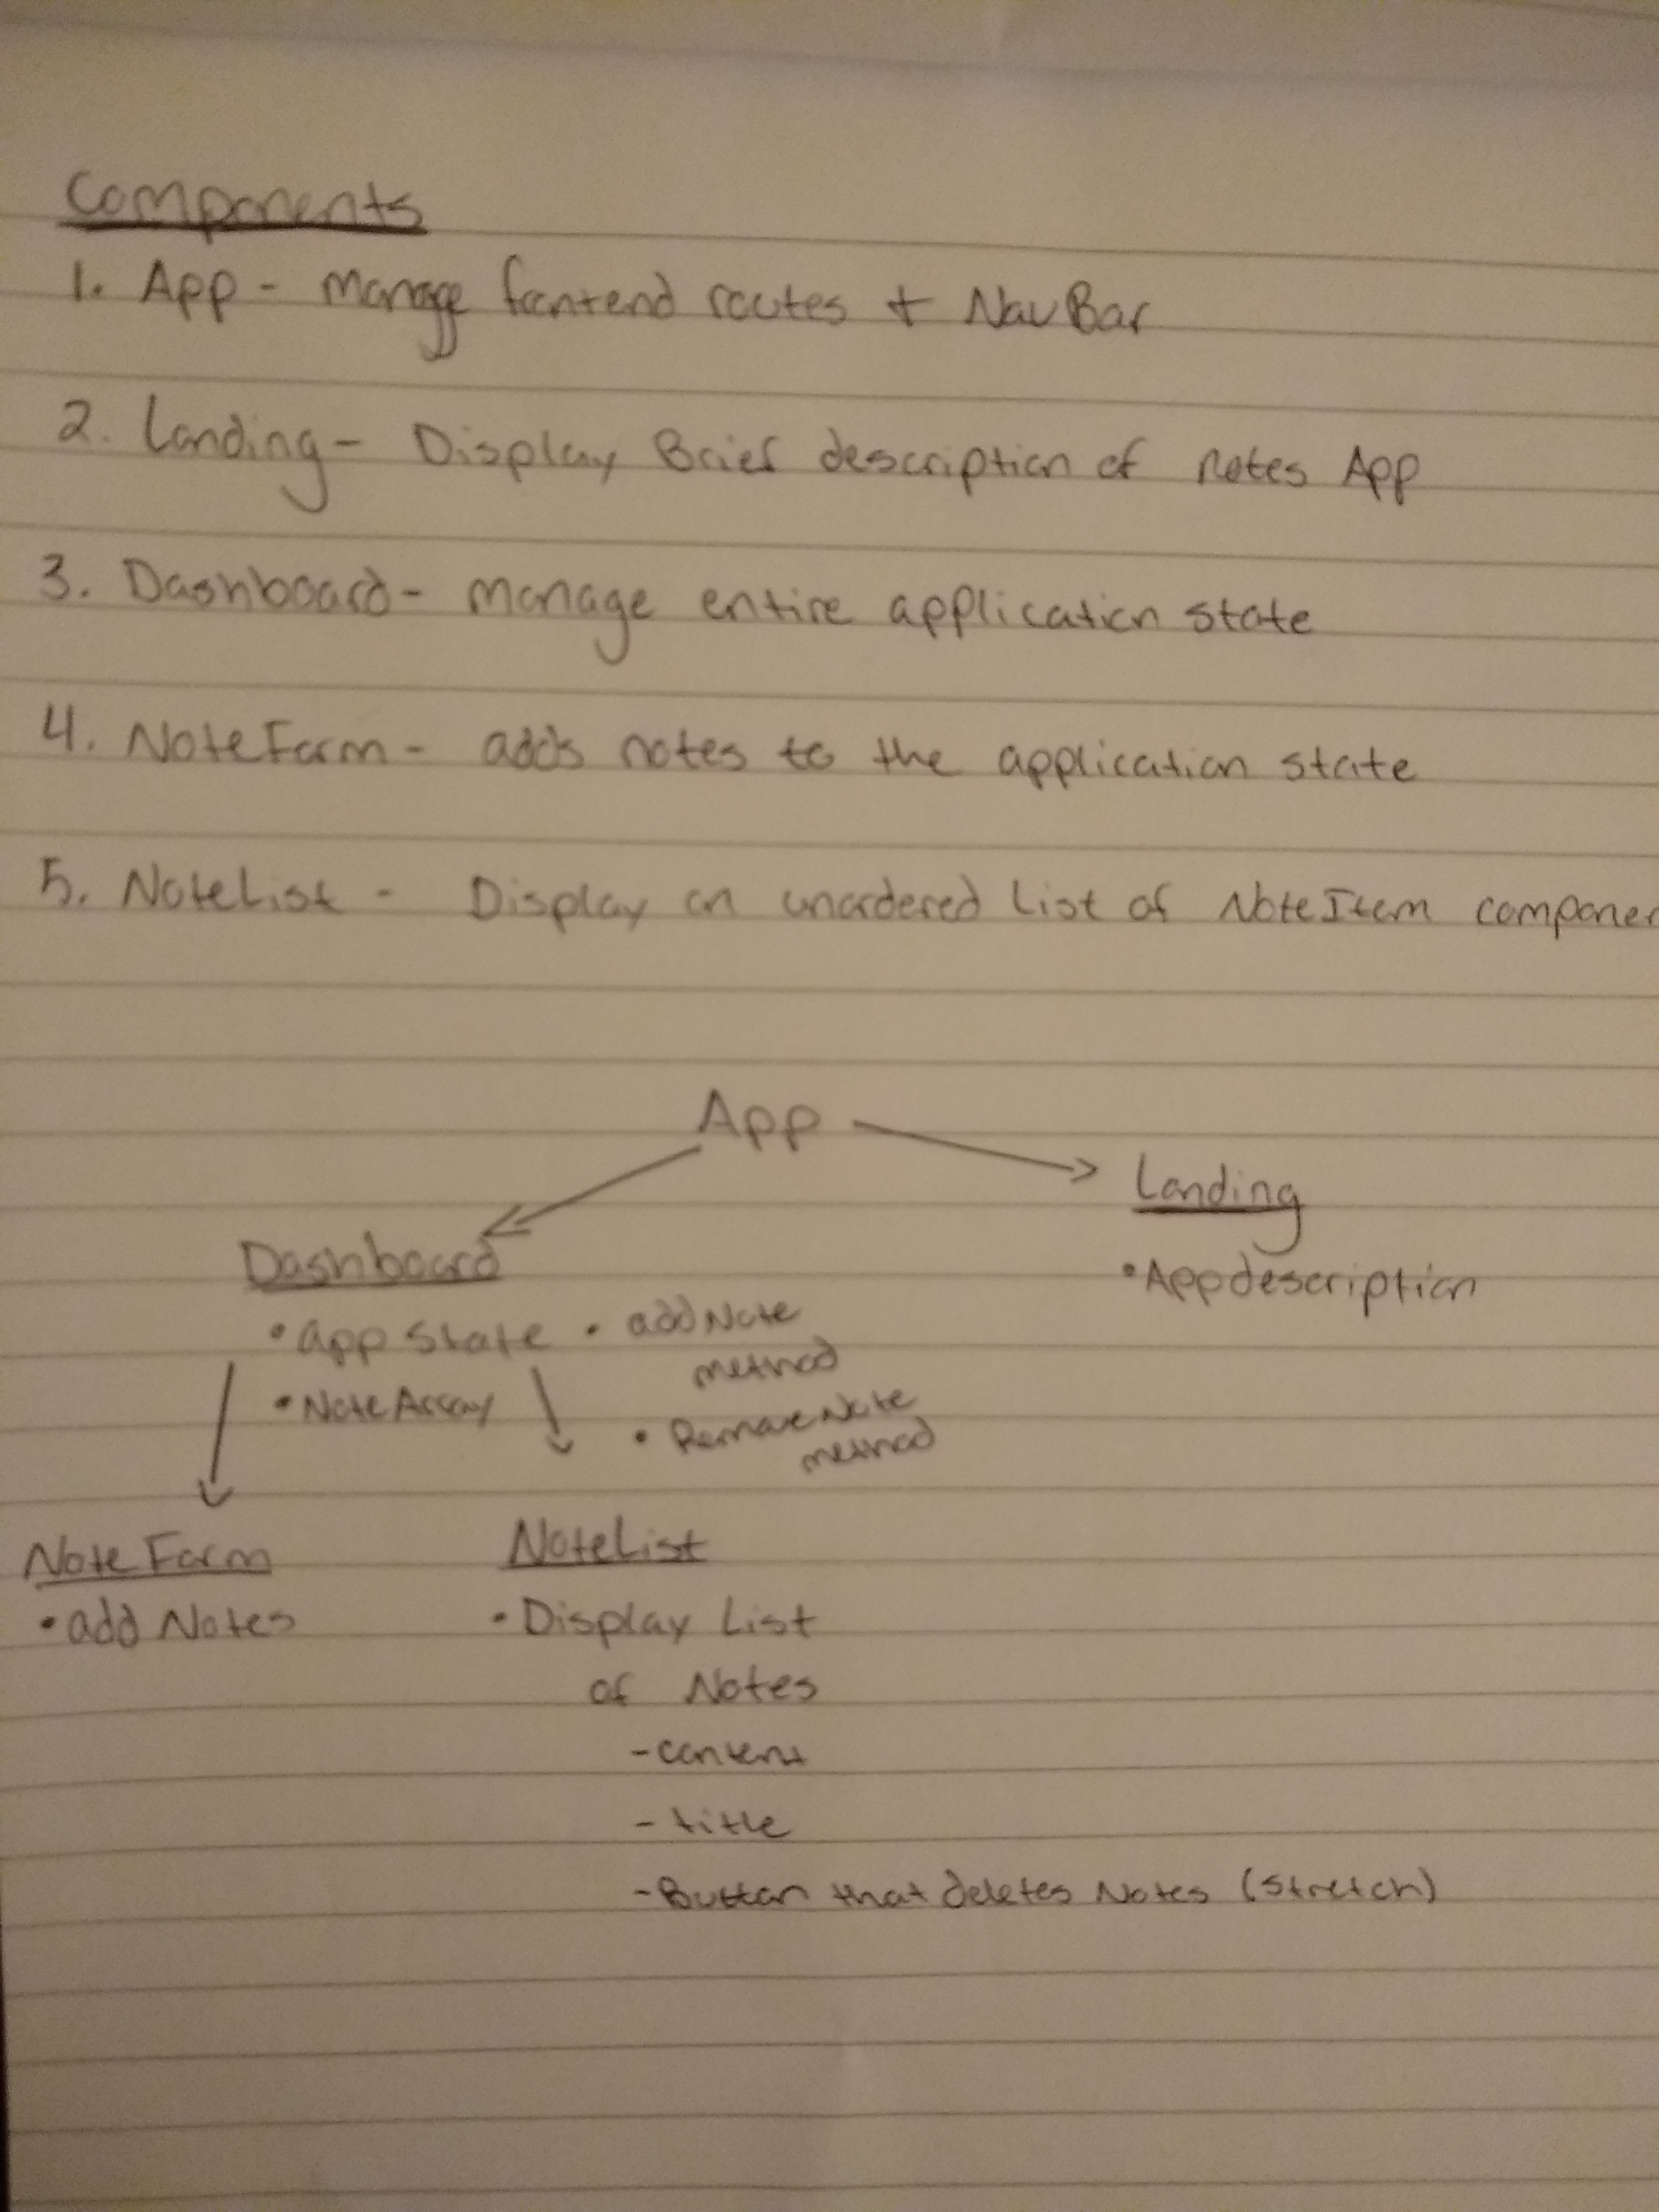 Components
1. App - manage frontend routes + NavBar
2. Landing - Display Brief description of notes App
3. Dashboard - manage entire application state
4. NoteForm - adds notes to the application state
5. NoteList - Display an unordered List of NoteItem componen
App
Landing
• App description
Dashboard
• app State • addNote
method
• Note Array
• RemoveNote
method
Note Form
• add Notes
NoteList
• Display List
of Notes
- content
- title
- Button that deletes Notes (stretch)